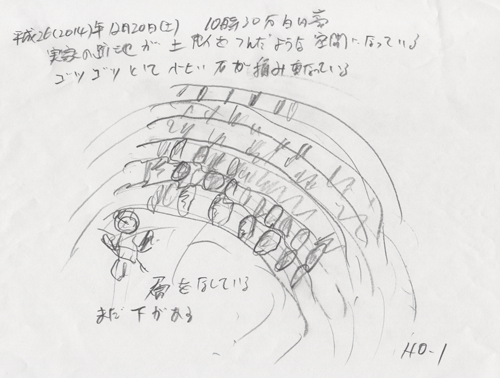 平成26(2014)年12月20日(土) 10時30分 白日夢
実家の敷地が土俵をつんだような空間になっている
ゴツゴツとして 石が積み重なっている
層をなしている
まだ下がある
HO-1